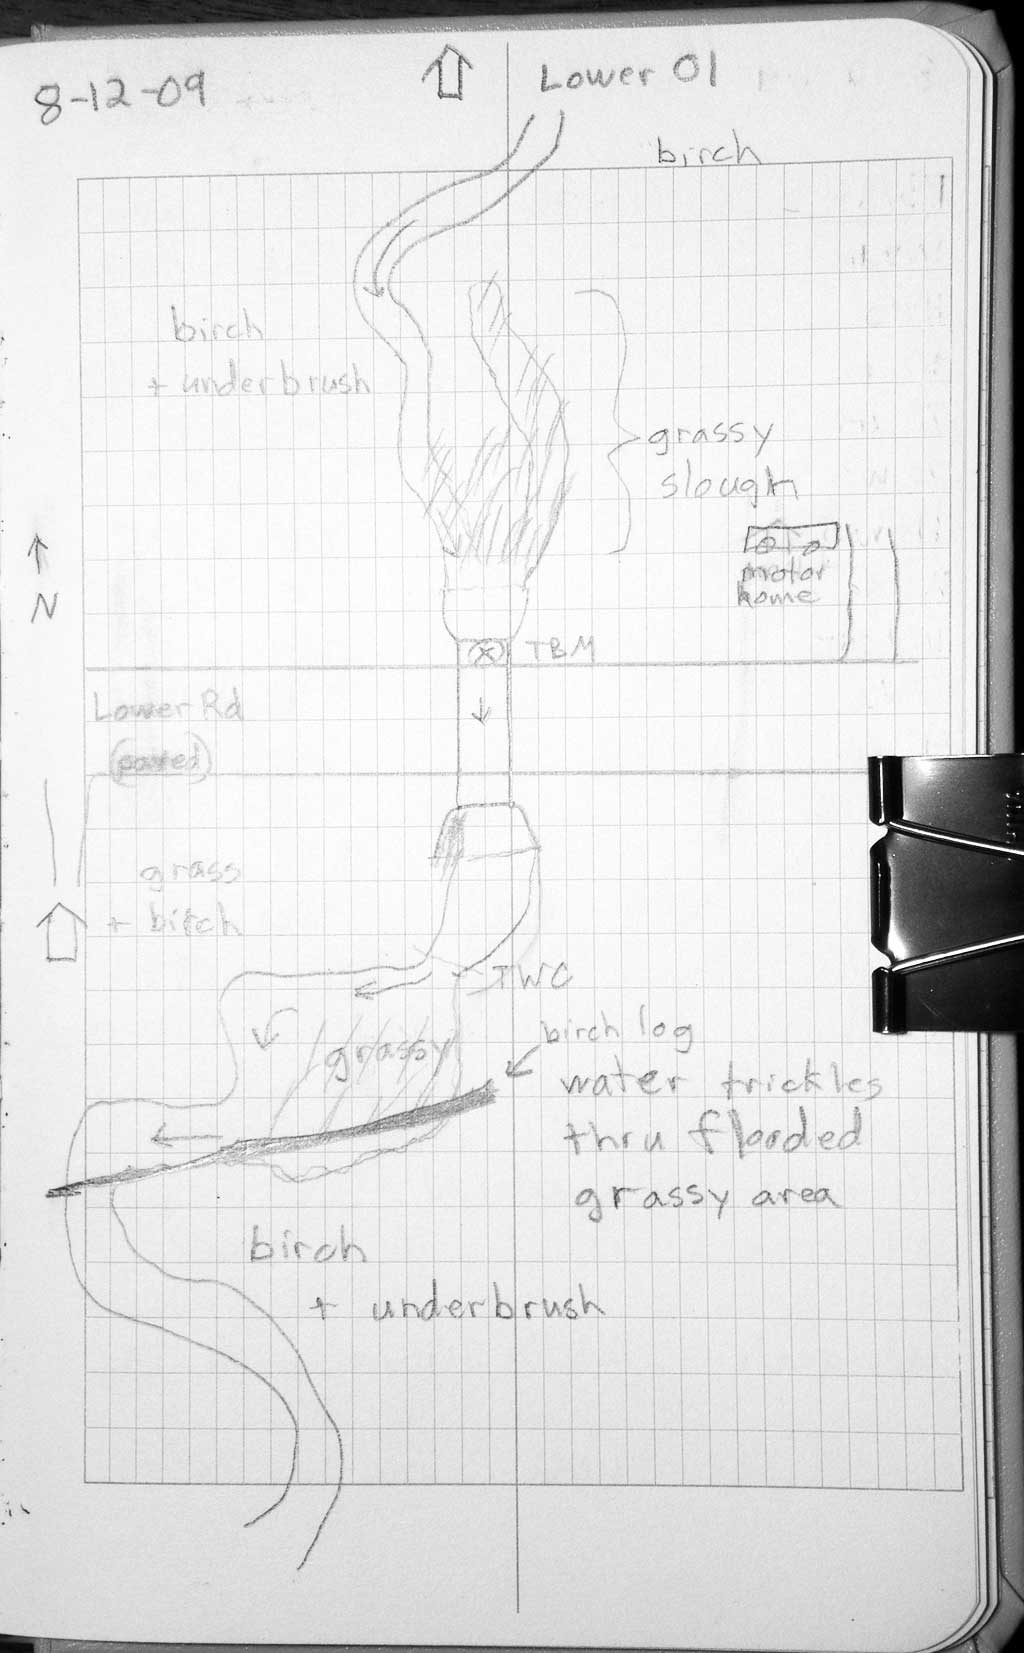 8-12-09
Lower 01
birch
birch
+ underbrush
grassy
slough
motor
home
N
TBM
Lower Rd
(paved)
grass
+ birch
TWC
grassy
birch log
water trickles
thru flooded
grassy area
birch
+ underbrush